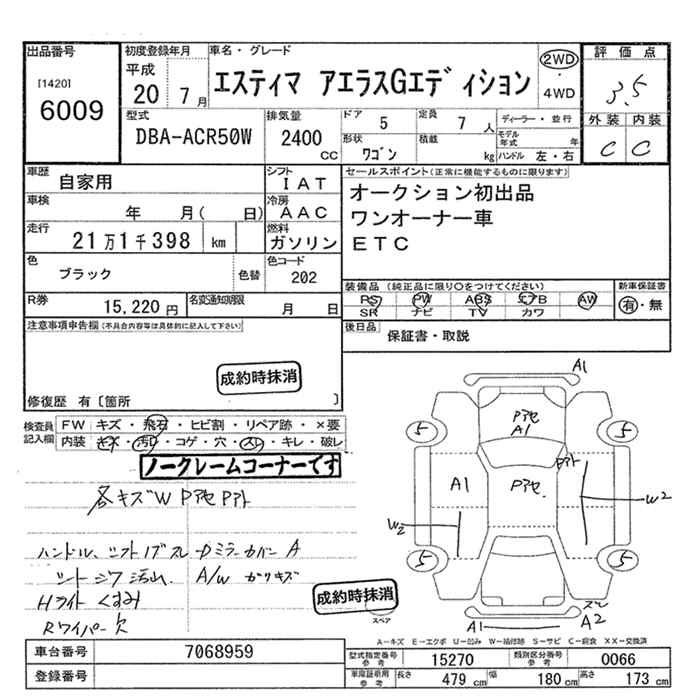 出品番号 初度登録年月 車名・グレード 2WD 評価点
[1420] 平成 エスティマ アエラスGエディション ・ 3.5
6009 20 7月 4WD
外装 内装
型式 排気量 ドア 5 定員 7人 ディーラー・並行 C C
DBA-ACR50W 2400cc 形状 ワゴン 積載 kg モデル年式 年
ハンドル 左・右
車歴 自家用 シフト IAT セールスポイント(正常に機能するものに限ります)
車検 年 月( 日) 冷房 AAC オークション初出品
走行 21万1千398 km 燃料 ガソリン ワンオーナー車
ETC
色 ブラック 色替 色コード 202
装備品(純正品に限り○をつけてください) 新車保証書
R券 15,220円 名変通知期限 月 日 PS PW ABS エアB AW 有・無
SR ナビ TV カワ
注意事項申告欄(不具合内容等は具体的に記入して下さい) 後日品 保証書・取説
成約時抹消
修復歴 有〔箇所 〕
検査員記入欄 FW キズ・飛石・ヒビ割・リペア跡・×要
内装 キズ・汚れ・コゲ・穴・スレ・キレ・破レ
ノークレームコーナーです
各キズW Pアセ Pアト
ハンドル、シフトノブスレ Dミラーカバー A
シートシワ汚れ A/W ガリキズ
Hライトくすみ
Rワイパー欠
成約時抹消
A1
Pアセ
A1
5 5
Pアト
A1 Pアセ
W2
W2
5 5
スペア
スレ
A1 A2
A-キズ E-エクボ U-凹み W-補修跡 S-サビ C-腐食 XX-交換済
車台番号 7068959 型式指定番号 参考 15270 類別区分番号 参考 0066
登録番号 車庫証明用 参考 長さ 479cm 幅 180cm 高さ 173cm